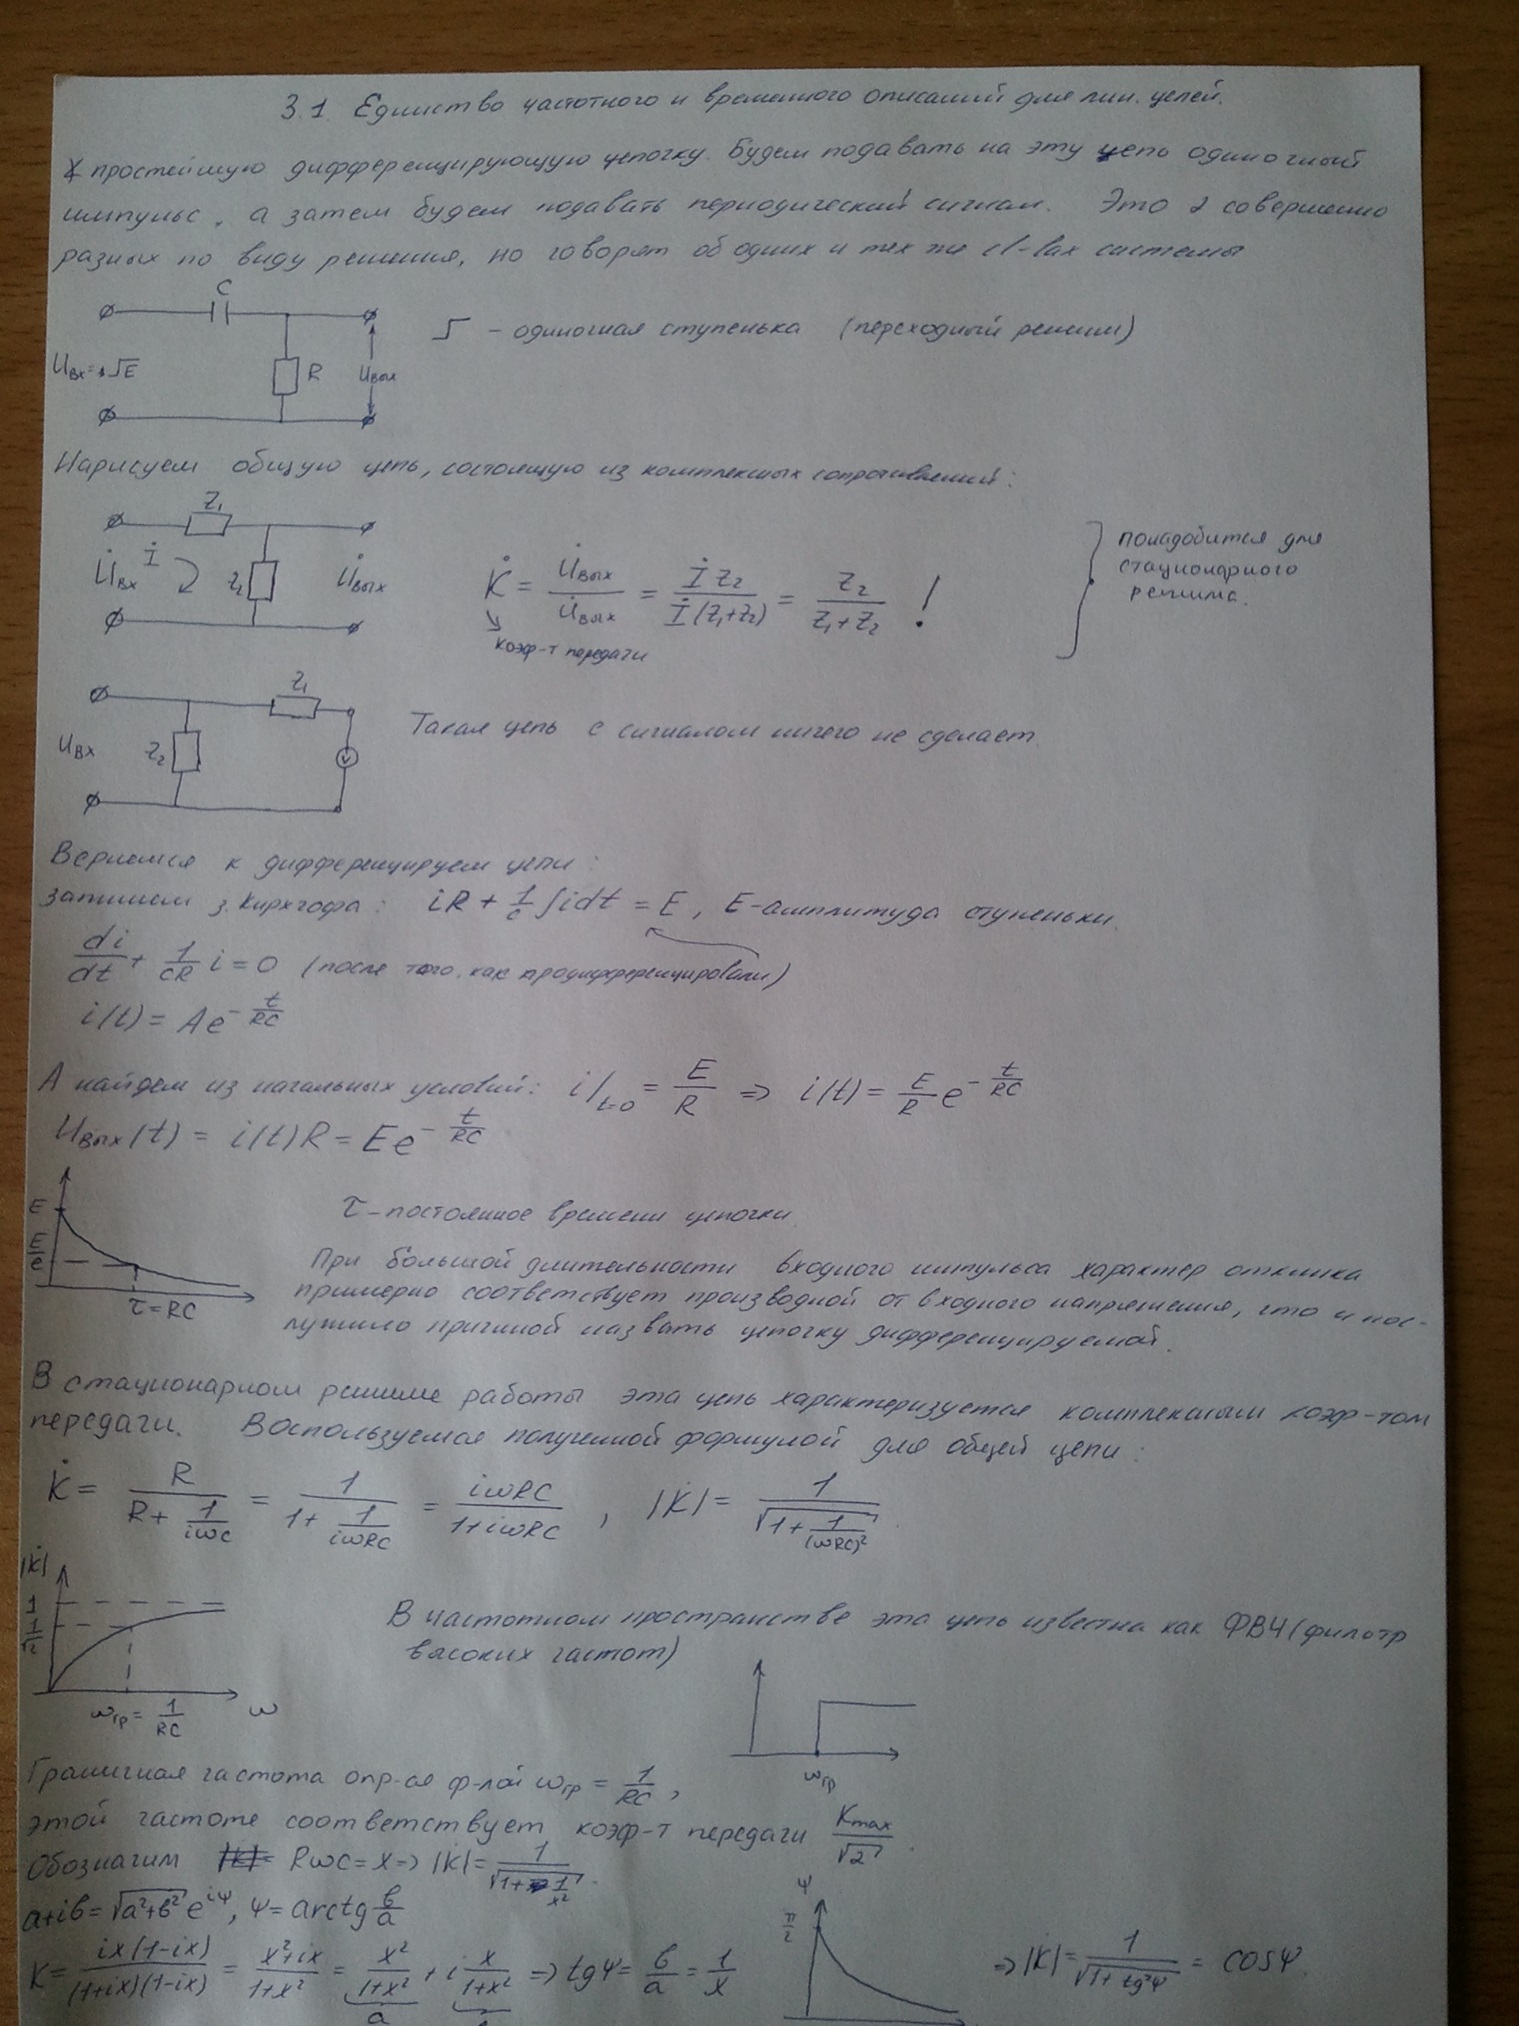 3.1 Единство частотного и временного описаний для лин. цепей.
простейшую дифференцирующую цепочку. Будем подавать на эту цепь одиночный
импульс, а затем будем подавать периодический сигнал. Это 2 совершенно
разных по виду решения, но говорят об одних и тех же св-вах системы
C
Uвх = E
R
Uвых
– одиночная ступенька (переходный режим)
Нарисуем общую цепь, состоящую из комплексных сопротивлений:
Z₁
U̇вх
İ
Z₂
U̇вых
K̇ = U̇вых / U̇вых = İ Z₂ / İ(Z₁+Z₂) = Z₂ / Z₁+Z₂ !
коэф-т передачи
понадобится для
стационарного
режима.
Z₁
Uвх
Z₂
V
Такая цепь с сигналом ничего не сделает.
Вернемся к дифференцируем цепи:
запишем з. Кирхгофа: iR + 1/c ∫idt = E, E-амплитуда ступеньки.
di/dt + 1/CR i = 0 (после того, как продифференцировали)
i(t) = Ae^(-t/RC)
А найдем из начальных условий: i|t=0 = E/R => i(t) = E/R e^(-t/RC)
Uвых(t) = i(t)R = Ee^(-t/RC)
E
E/e
τ = RC
τ – постоянное времени цепочки.
При большой длительности входного импульса характер отклика
примерно соответствует производной от входного напряжения, что и пос-
лужило причиной назвать цепочку дифференцируемой.
В стационарном режиме работы эта цепь характеризуется комплексным коэф-том
передачи. Воспользуемся полученной формулой для общей цепи:
K̇ = R / (R + 1/iωC) = 1 / (1 + 1/iωRC) = iωRC / (1+iωRC), |K̇| = 1 / √(1 + 1/(ωRC)²)
|K̇|
1
1/√2
ωгр = 1/RC
ω
В частотном пространстве эта цепь известна как ФВЧ (фильтр
высоких частот)
ωгр
Граничная частота опр-ся ф-лой ωгр = 1/RC,
этой частоте соответствует коэф-т передачи Kmax/√2.
Обозначим RωC = x => |K| = 1 / √(1 + 1/x²).
a+ib = √(a²+b²) e^(iΨ), Ψ = arctg b/a
K = ix(1-ix) / (1+ix)(1-ix) = x²+ix / 1+x² = x²/1+x² + i x/1+x² => tgΨ = b/a = 1/x
a
Ψ
π/2
=> |K| = 1 / √(1 + tg²Ψ) = cosΨ.